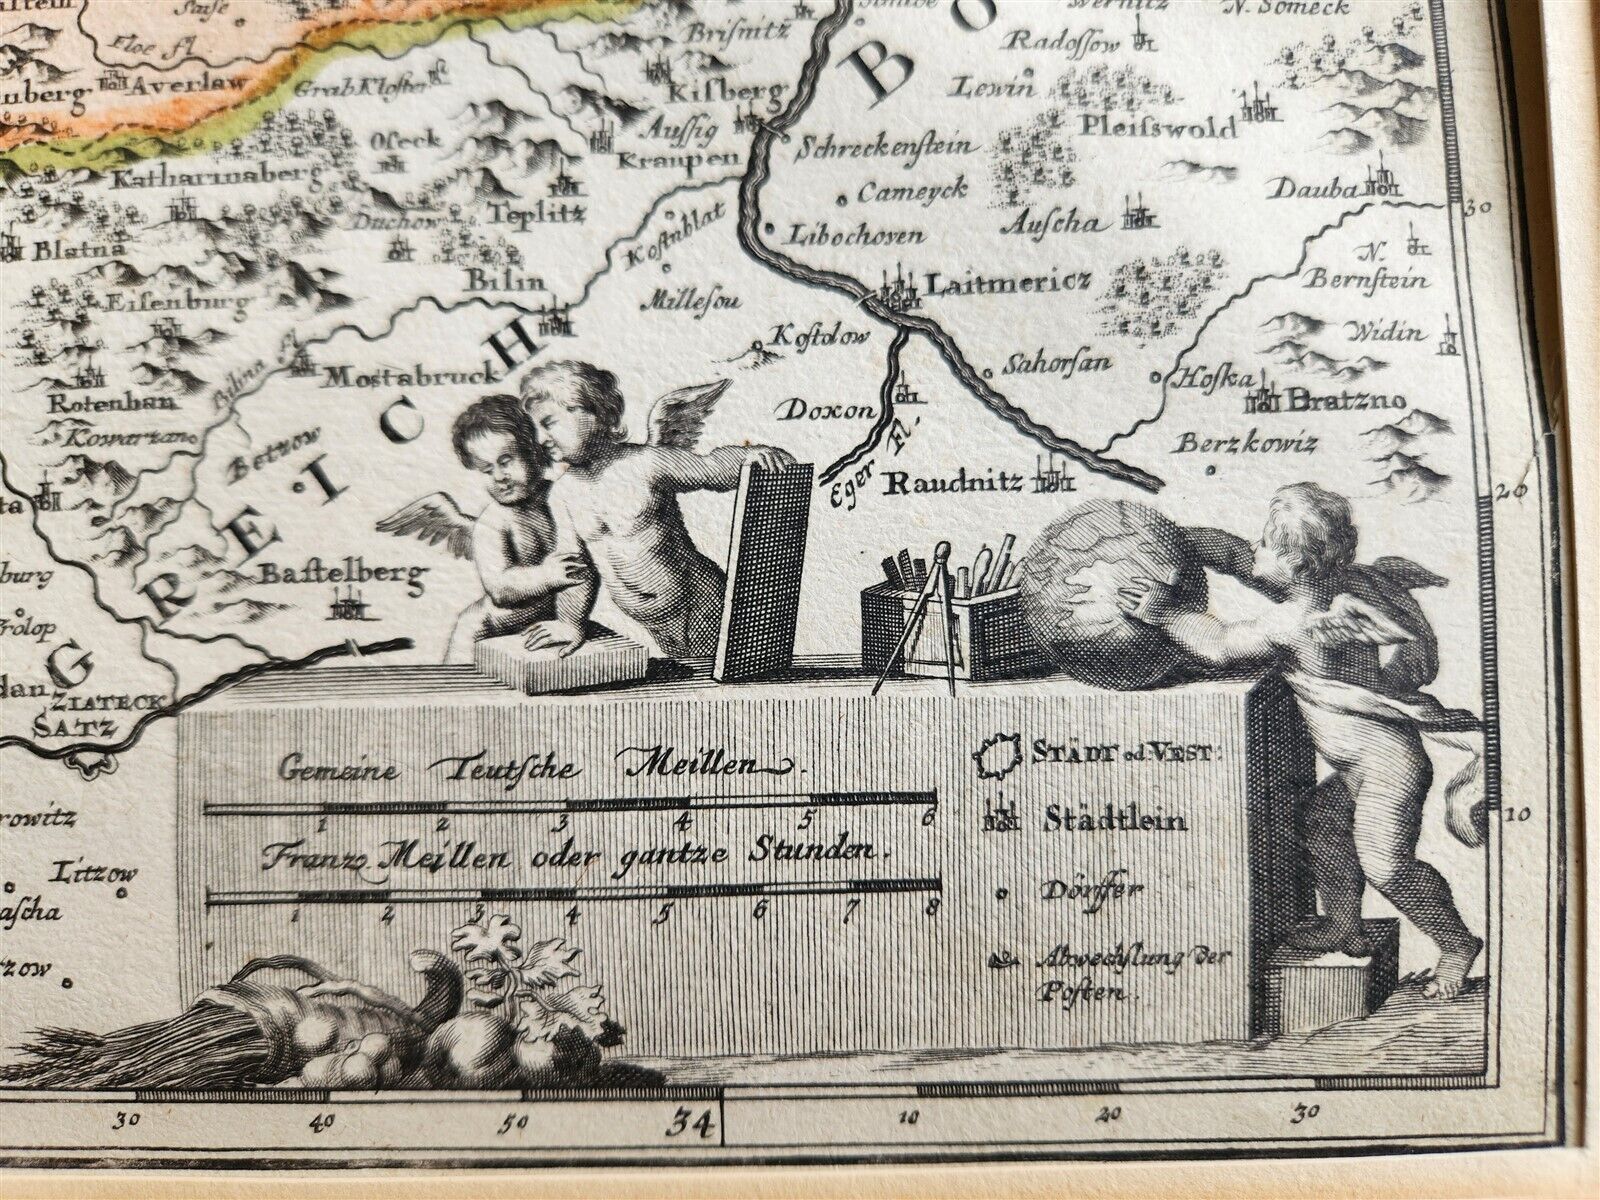 Brisnitz
Wernitz
N. Someck
Floe fl.
Radossow
Averlaw
Grab Kloster
Kisberg
Lewin
BO
Aussig
Pleisswold
Oseck
Kraupen
Schreckenstein
Katharinaberg
Cameyck
Dauba
Duchow
Teplitz
30
Kostnblat
Libochoven
Auscha
Blatna
N.
Bernstein
Bilin
Laitmericz
Eisenburg
Millesou
Kostolow
Widin
Bilina fl.
Mostabruck
Sahorsan
Hoska
Bratzno
Rotenhan
Doxon
Kowarzano
Berzkowiz
Betzow
Eger Fl.
Raudnitz
20
G REICH
Bastelberg
burg
ZIATECK
SATZ
Gemeine Teutsche Meillen.
STÄDT od. VEST:
1 2 3 4 5 6
Städtlein
10
Franzo Meillen oder gantze Stunden.
Litzow
Dörffer
1 2 3 4 5 6 7 8
ascha
Abwechslung der
Posten.
zow
30 40 50 34 10 20 30